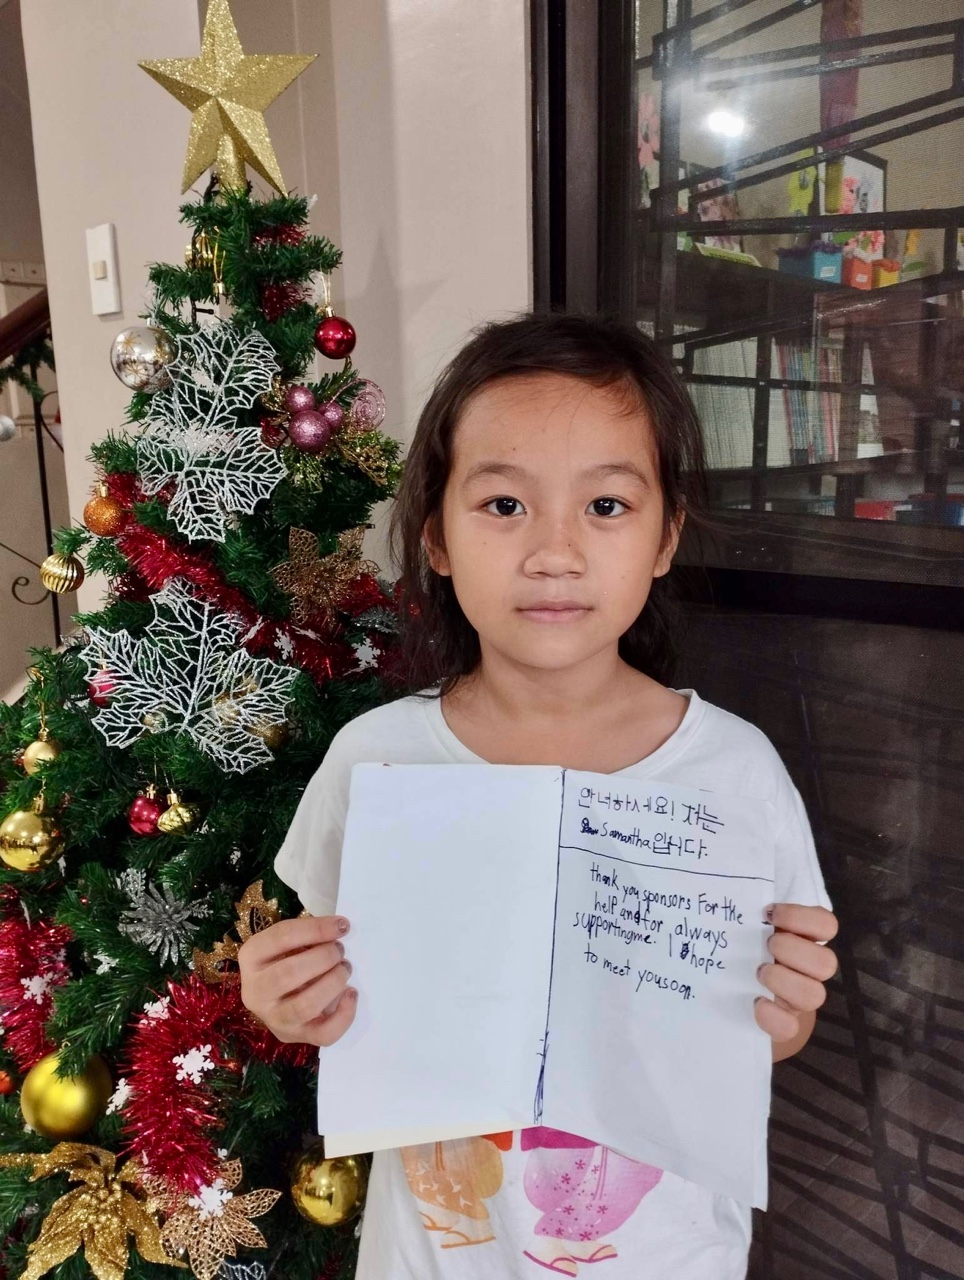 안녕하세요! 저는
Samantha입니다.
thank you sponsors For the
help and for always
supporting me. I hope
to meet you soon.